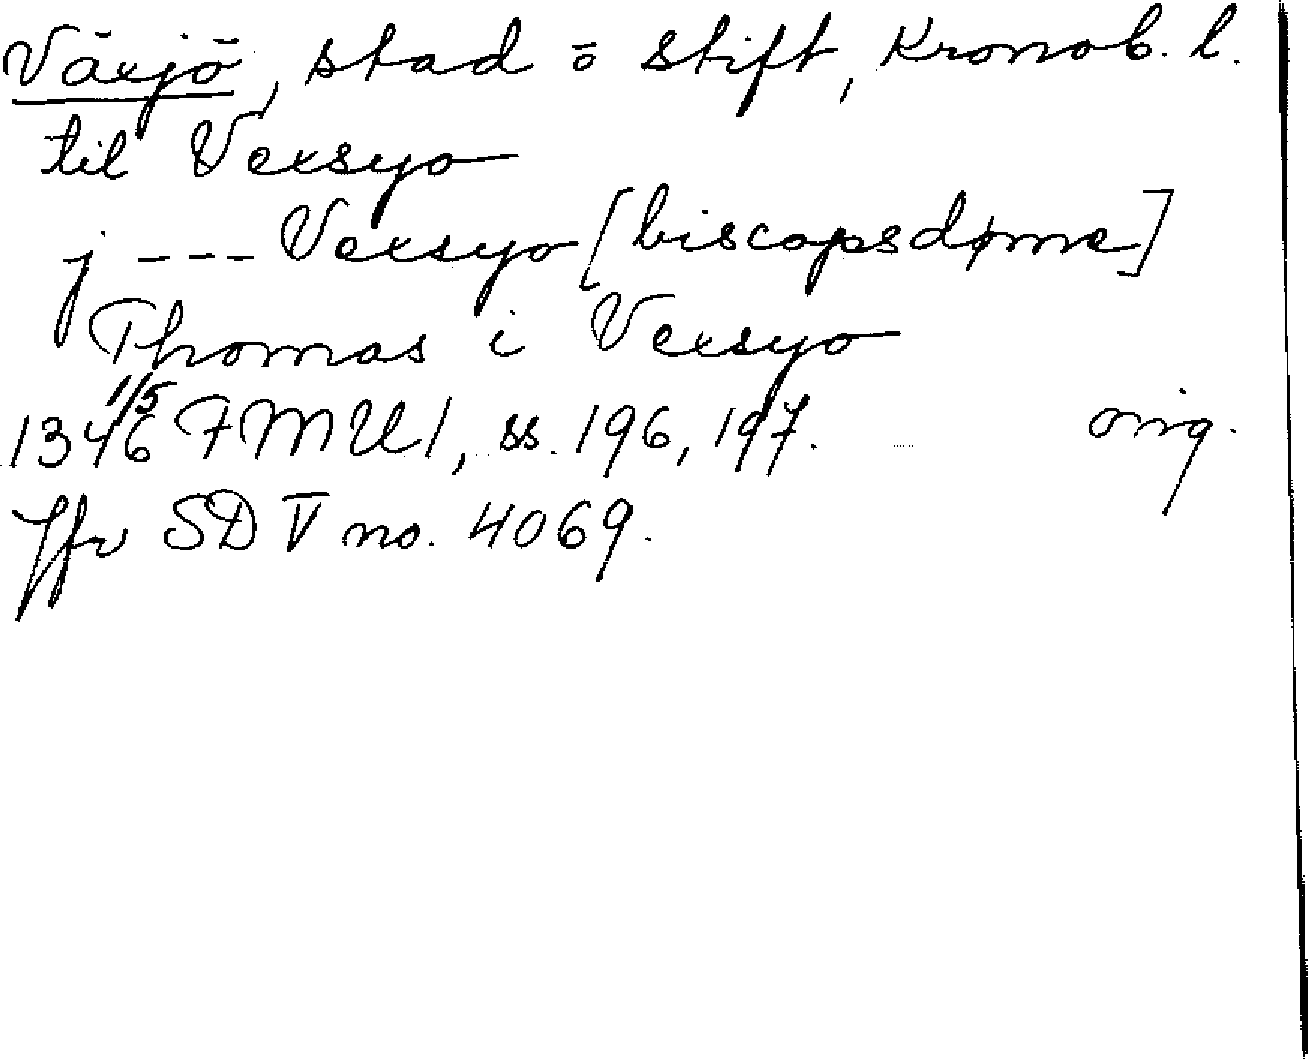 Växjö, stad ö stift, Kronob. l.
til Vexsyo
j --- Vexsyo [biscopsdøme]
Thomas i Vexsyo
1346 1/5 FMU 1, ss. 196, 197. orig.
Jfr SD V no. 4069.